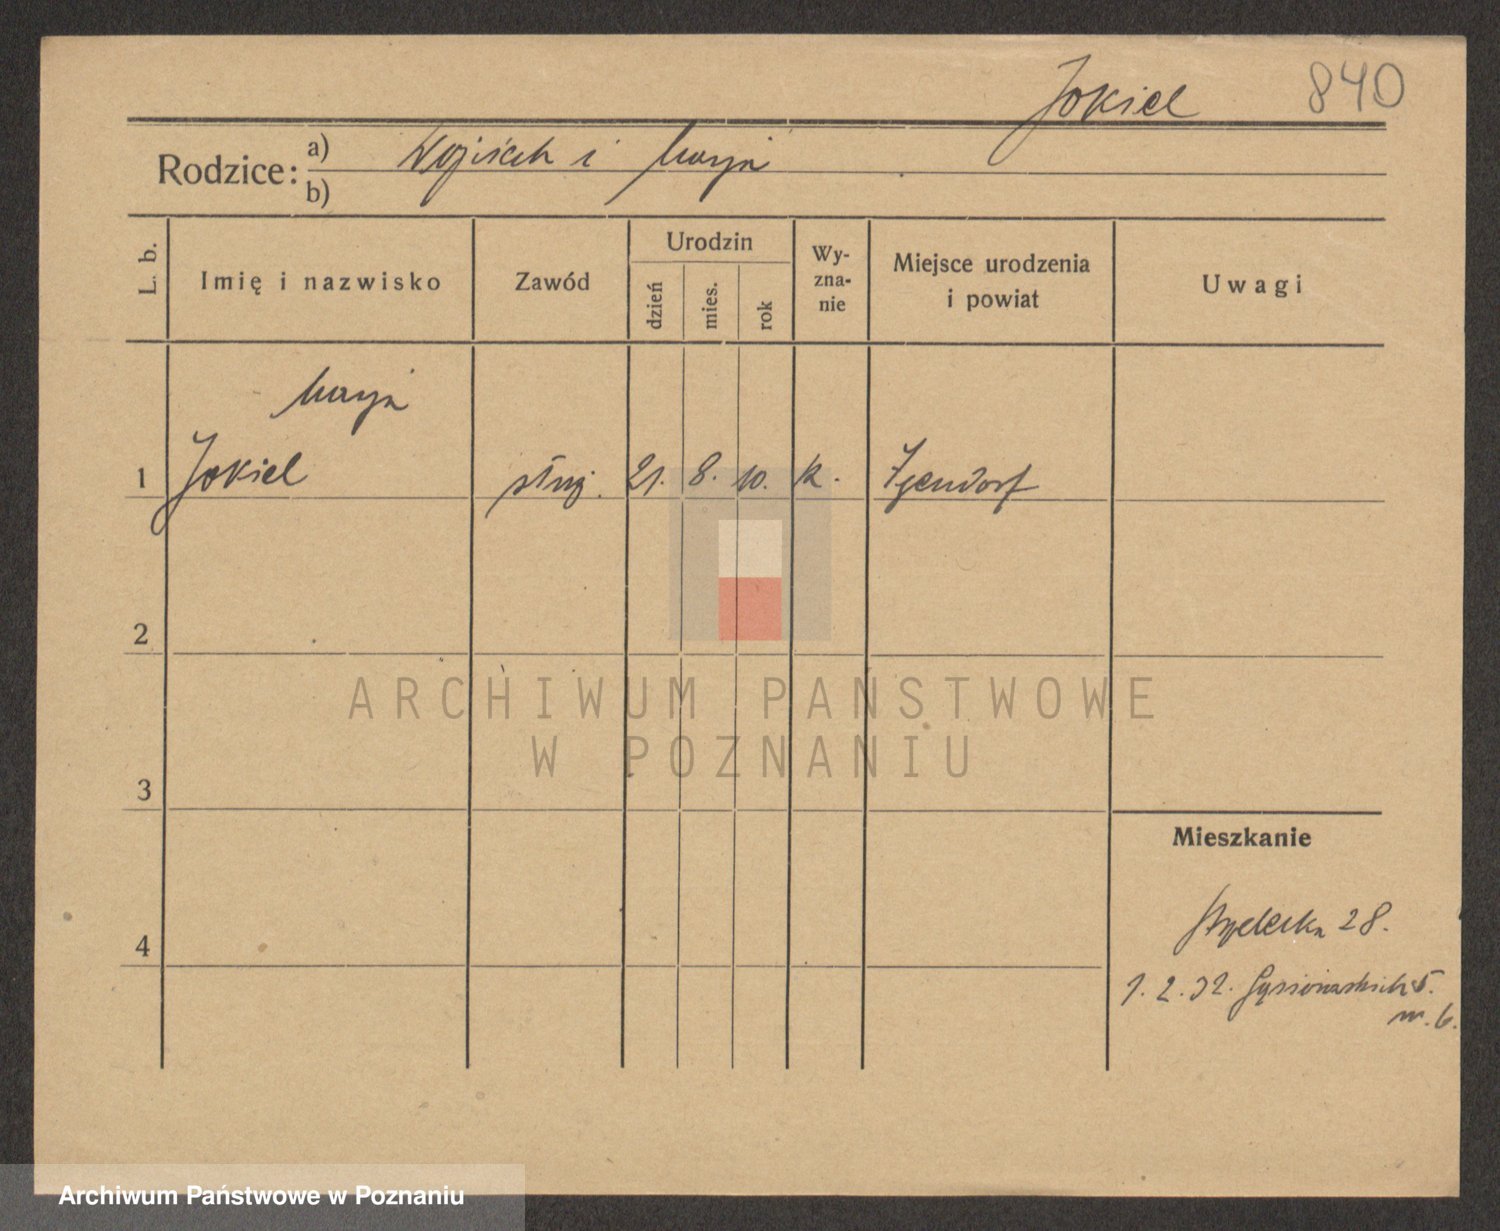 Jokiel 840
Rodzice: a) Wojciech i Marja
b)
L. b.
Imię i nazwisko
Zawód
Urodzin
dzień
mies.
rok
Wy-
zna-
nie
Miejsce urodzenia
i powiat
Uwagi
Marja
1 Jokiel służ. 21. 8. 10. k.
2
3
4
Mieszkanie
28.
1. 2. 32. 5.
m. 6.
ARCHIWUM PAŃSTWOWE
W POZNANIU
Archiwum Państwowe w Poznaniu